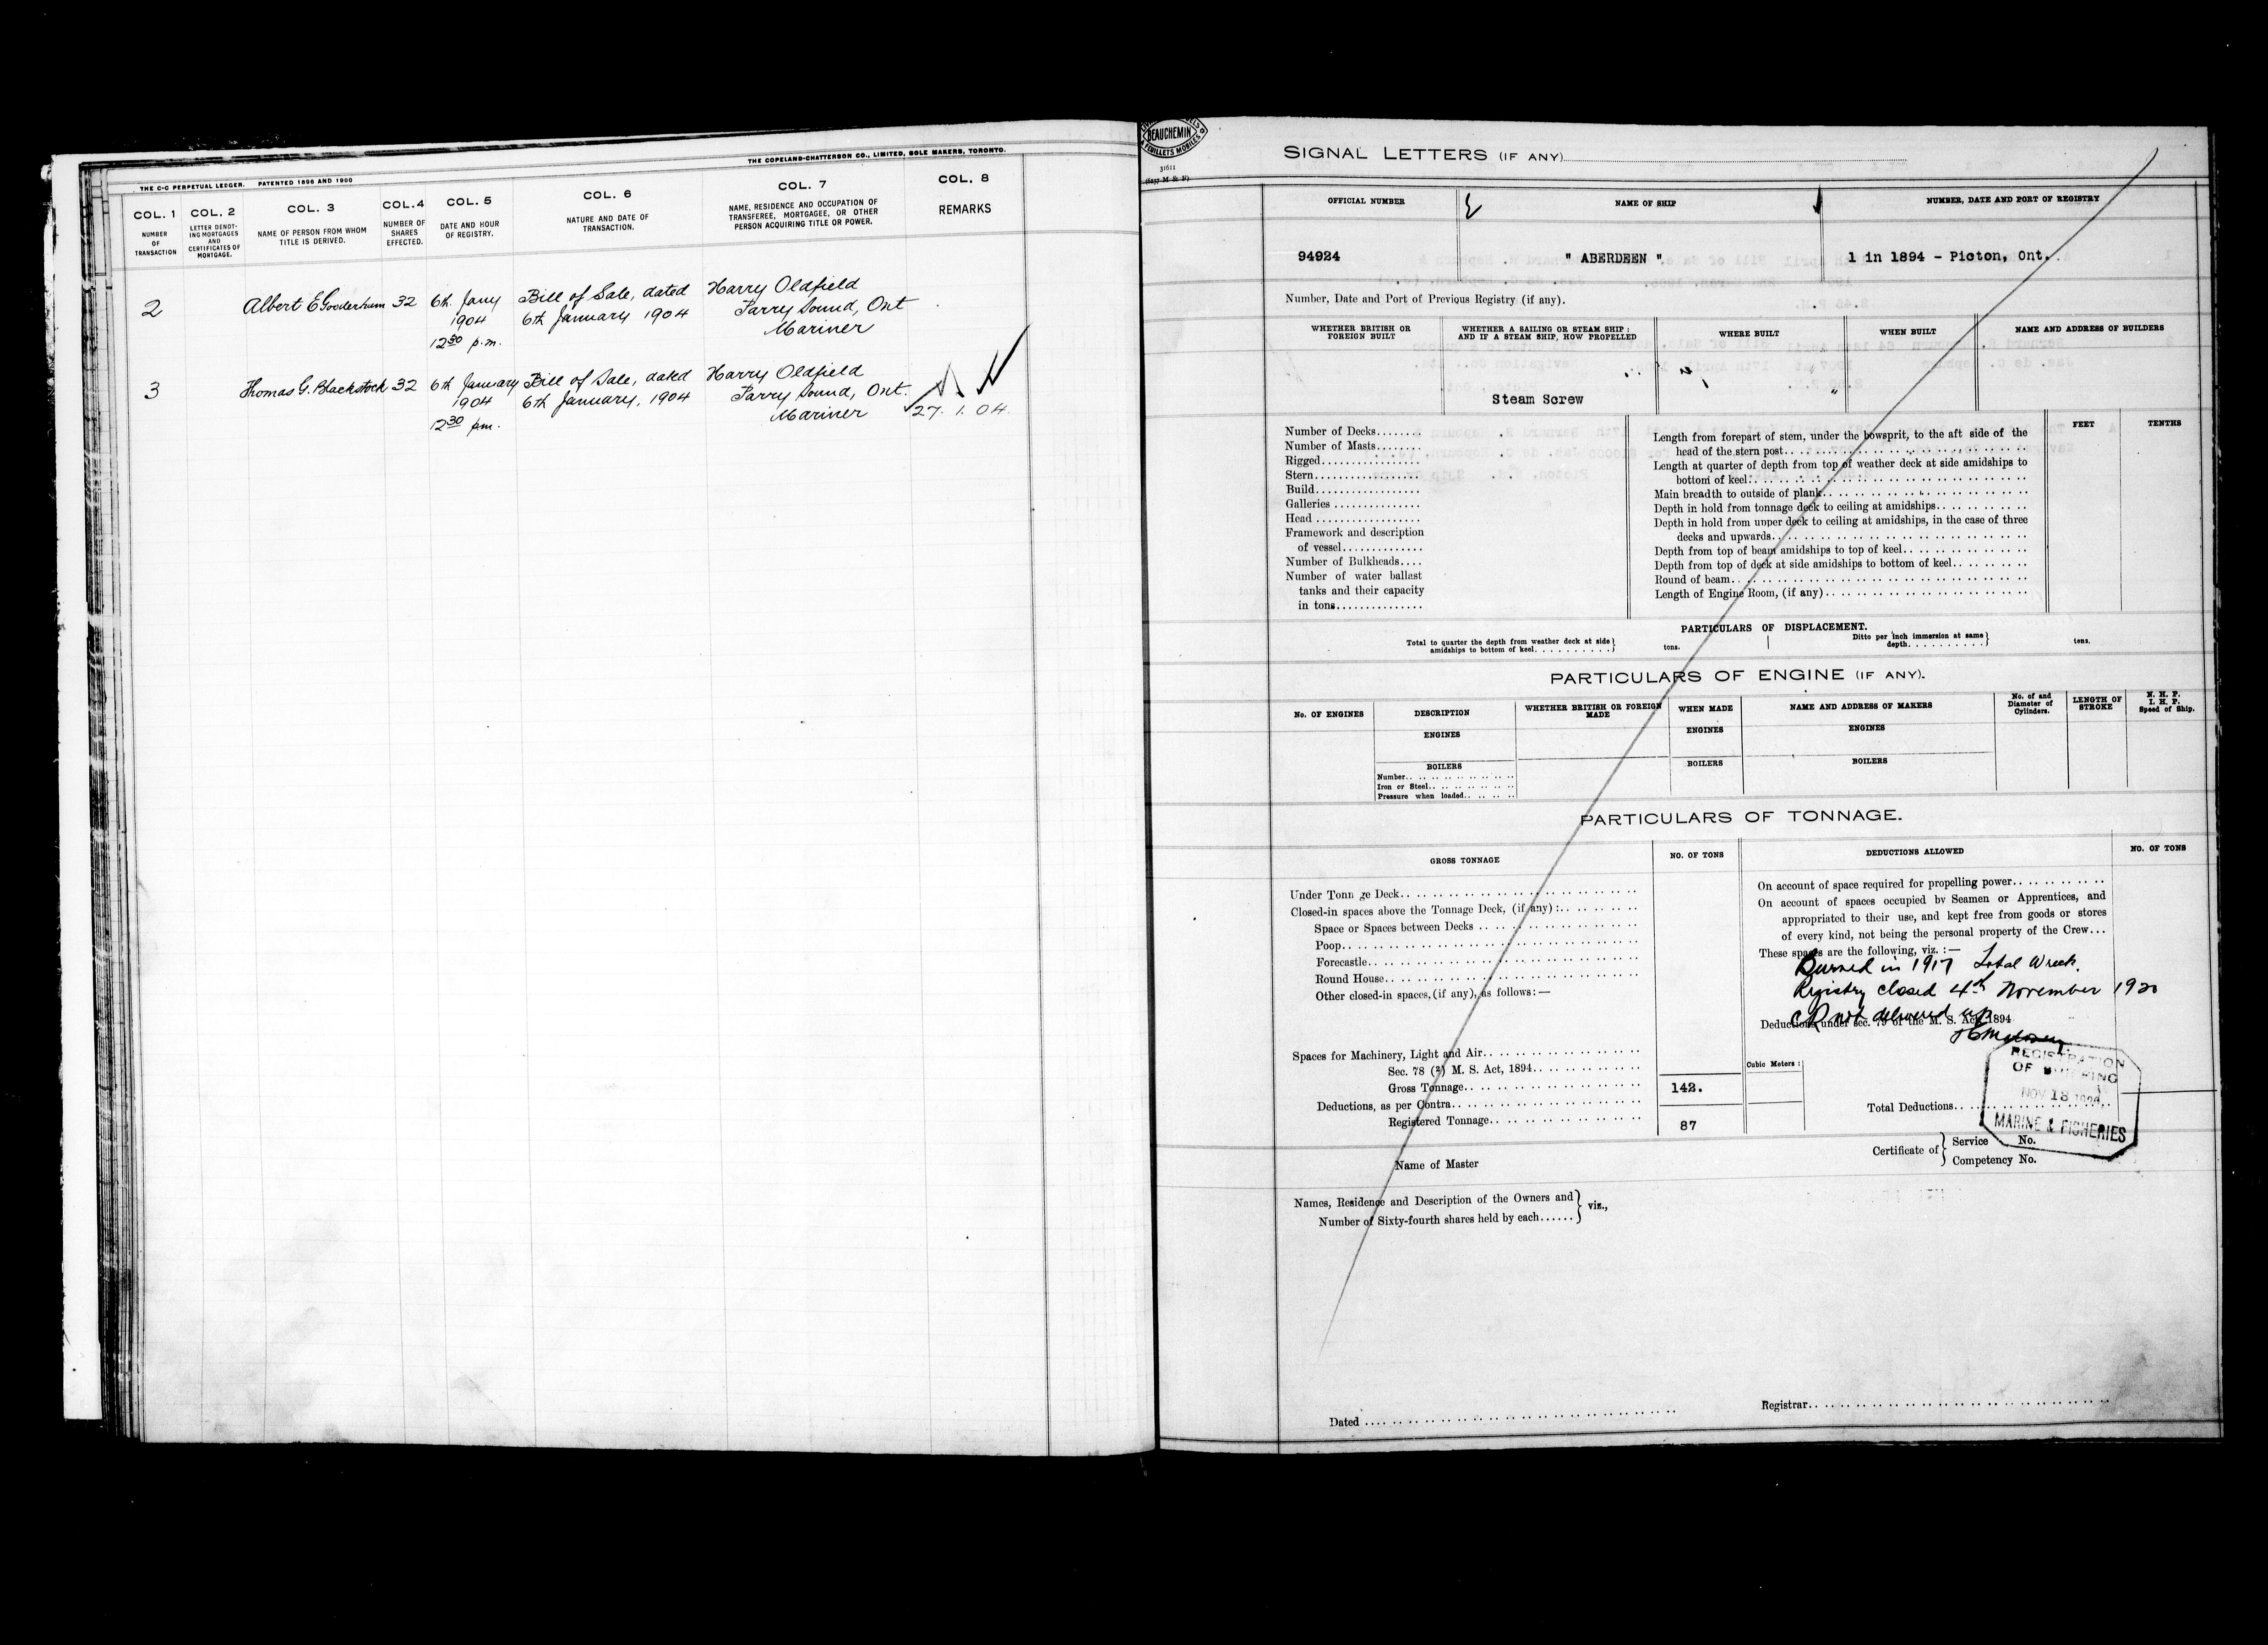 THE C-C PERPETUAL LEDGER. PATENTED 1896 AND 1900
THE COPELAND-CHATTERSON CO., LIMITED, SOLE MAKERS, TORONTO.
COL. 1 COL. 2 COL. 3 COL. 4 COL. 5 COL. 6 COL. 7 COL. 8
NUMBER OF TRANSACTION
LETTER DENOTING MORTGAGES AND CERTIFICATES OF MORTGAGE.
NAME OF PERSON FROM WHOM TITLE IS DERIVED.
NUMBER OF SHARES EFFECTED.
DATE AND HOUR OF REGISTRY.
NATURE AND DATE OF TRANSACTION.
NAME, RESIDENCE AND OCCUPATION OF TRANSFEREE, MORTGAGEE, OR OTHER PERSON ACQUIRING TITLE OR POWER.
REMARKS
2 Albert E Gooderham 32 6th Jany Bill of Sale, dated Harry Oldfield
1904 6th January 1904 Parry Sound, Ont
12 30 p.m. Mariner
3 Thomas G. Blackstock 32 6th January Bill of Sale, dated Harry Oldfield
1904 6th January, 1904 Parry Sound, Ont.
12 30 p.m. Mariner 27. 1. 04.
BEAUCHEMIN
FEUILLETS MOBILES
31611
SIGNAL LETTERS (IF ANY)
OFFICIAL NUMBER NAME OF SHIP NUMBER, DATE AND PORT OF REGISTRY
94924 " ABERDEEN " 1 in 1894 - Picton, Ont.
Number, Date and Port of Previous Registry (if any).
WHETHER BRITISH OR FOREIGN BUILT
WHETHER A SAILING OR STEAM SHIP: AND IF A STEAM SHIP, HOW PROPELLED
WHERE BUILT
WHEN BUILT
NAME AND ADDRESS OF BUILDERS
Steam Screw
Number of Decks
Number of Masts
Rigged
Stern
Build
Galleries
Head
Framework and description
of vessel
Number of Bulkheads
Number of water ballast
tanks and their capacity
in tons
FEET TENTHS
Length from forepart of stem, under the bowsprit, to the aft side of the
head of the stern post
Length at quarter of depth from top of weather deck at side amidships to
bottom of keel
Main breadth to outside of plank
Depth in hold from tonnage deck to ceiling at amidships
Depth in hold from upper deck to ceiling at amidships, in the case of three
decks and upwards
Depth from top of beam amidships to top of keel
Depth from top of deck at side amidships to bottom of keel
Round of beam
Length of Engine Room, (if any)
PARTICULARS OF DISPLACEMENT.
Total to quarter the depth from weather deck at side
amidships to bottom of keel tons.
Ditto per inch immersion at same
depth tons.
PARTICULARS OF ENGINE (IF ANY).
No. OF ENGINES
DESCRIPTION
WHETHER BRITISH OR FOREIGN MADE
WHEN MADE
NAME AND ADDRESS OF MAKERS
No. of and Diameter of Cylinders.
LENGTH OF STROKE
N. H. P.
I. H. P.
Speed of Ship.
ENGINES ENGINES ENGINES
BOILERS BOILERS BOILERS
Number
Iron or Steel
Pressure when loaded
PARTICULARS OF TONNAGE.
GROSS TONNAGE NO. OF TONS DEDUCTIONS ALLOWED NO. OF TONS
Under Tonnage Deck
Closed-in spaces above the Tonnage Deck, (if any):
Space or Spaces between Decks
Poop
Forecastle
Round House
Other closed-in spaces, (if any), as follows:—
Spaces for Machinery, Light and Air
Sec. 78 (2) M. S. Act, 1894
Gross Tonnage 142.
Deductions, as per Contra
Registered Tonnage 87
Cubic Meters:
On account of space required for propelling power
On account of spaces occupied by Seamen or Apprentices, and
appropriated to their use, and kept free from goods or stores
of every kind, not being the personal property of the Crew
These spaces are the following, viz.:—
Burned in 1917 Total Wreck.
Registry closed 4th November 1920
CR not delivered up
Deductions under sec. 79 of the M. S. Act, 1894
REGISTRATION
OF SHIPPING
NOV 18 1920
MARINE & FISHERIES
Total Deductions
Name of Master
Certificate of Service No.
Competency No.
Names, Residence and Description of the Owners and
Number of Sixty-fourth shares held by each viz.,
Dated
Registrar